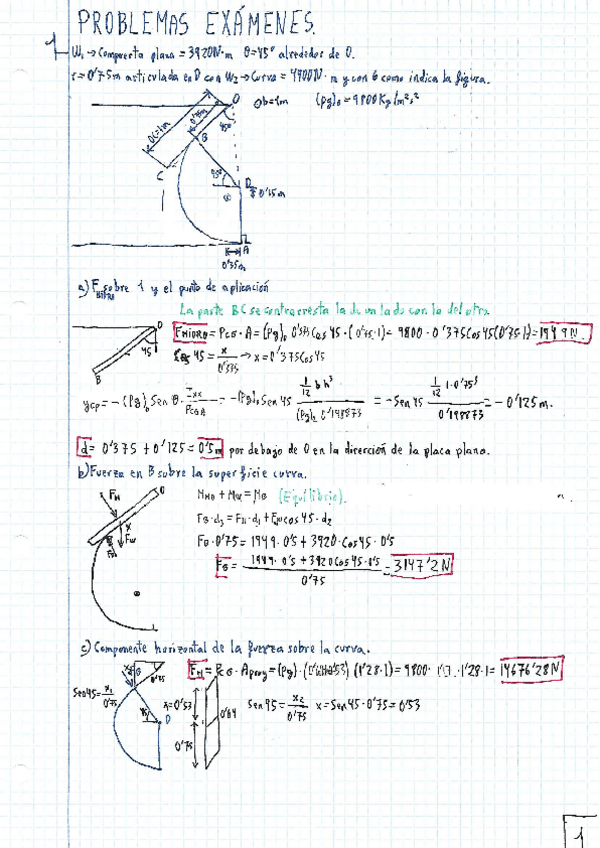 PROBLEMAS EXÁMENES.
1
W₁ → Compuerta plana = 3920N·m θ=45° alrededor de O.
r=0'75m articulada en D con W₂→Curva = 4900N·m y con G como indica la figura.
O b=1m (ρg)₀ = 9800 Kg/m²s²
OC=1m
0'75m
45°
B
C
45°
D
0'75m
A
0'35m
a) F HIDRO sobre 1 y el punto de aplicación
La parte BC se contrarresta la de un lado con la del otro.
F HIDRO = P CG · A = (ρg)₀ 0'375 Cos 45 · (0'75·1) = 9800 · 0'375 Cos 45 (0'75·1) = 1949 N.
O
45
B
Cos 45 = x/0'375 → x = 0'375 Cos 45
y CP = -(ρg)₀ Sen θ · Ixx/(P CG A) = -(ρg)₀ Sen 45 (1/12 b h³)/((ρg)₀ 0'198873) = -Sen 45 (1/12 1·0'75³)/0'198873 = -0'125 m.
d = 0'375 + 0'125 = 0'5m por debajo de O en la dirección de la placa plana.
b) Fuerza en B sobre la superficie curva.
F H
O
M HO + M W = M B (Equilibrio).
F B · d₃ = F H · d₁ + F W cos 45 · d₂
F W
F B · 0'75 = 1949 · 0'5 + 3920 · Cos 45 · 0'5
F B = (1949 · 0'5 + 3920 Cos 45 · 0'5)/0'75 = 3147'2 N
c) Componente horizontal de la fuerza sobre la curva.
F H = P CG · A proy = (ρg) · (1'28·1) = 9800 · 1'28·1 = 14676'28 N
Sen 45 = x₁/0'75
0'75
B
45
D
x=0'53
0'64
0'75
Sen 45 = x₂/0'75 x = Sen 45 · 0'75 = 0'53
1